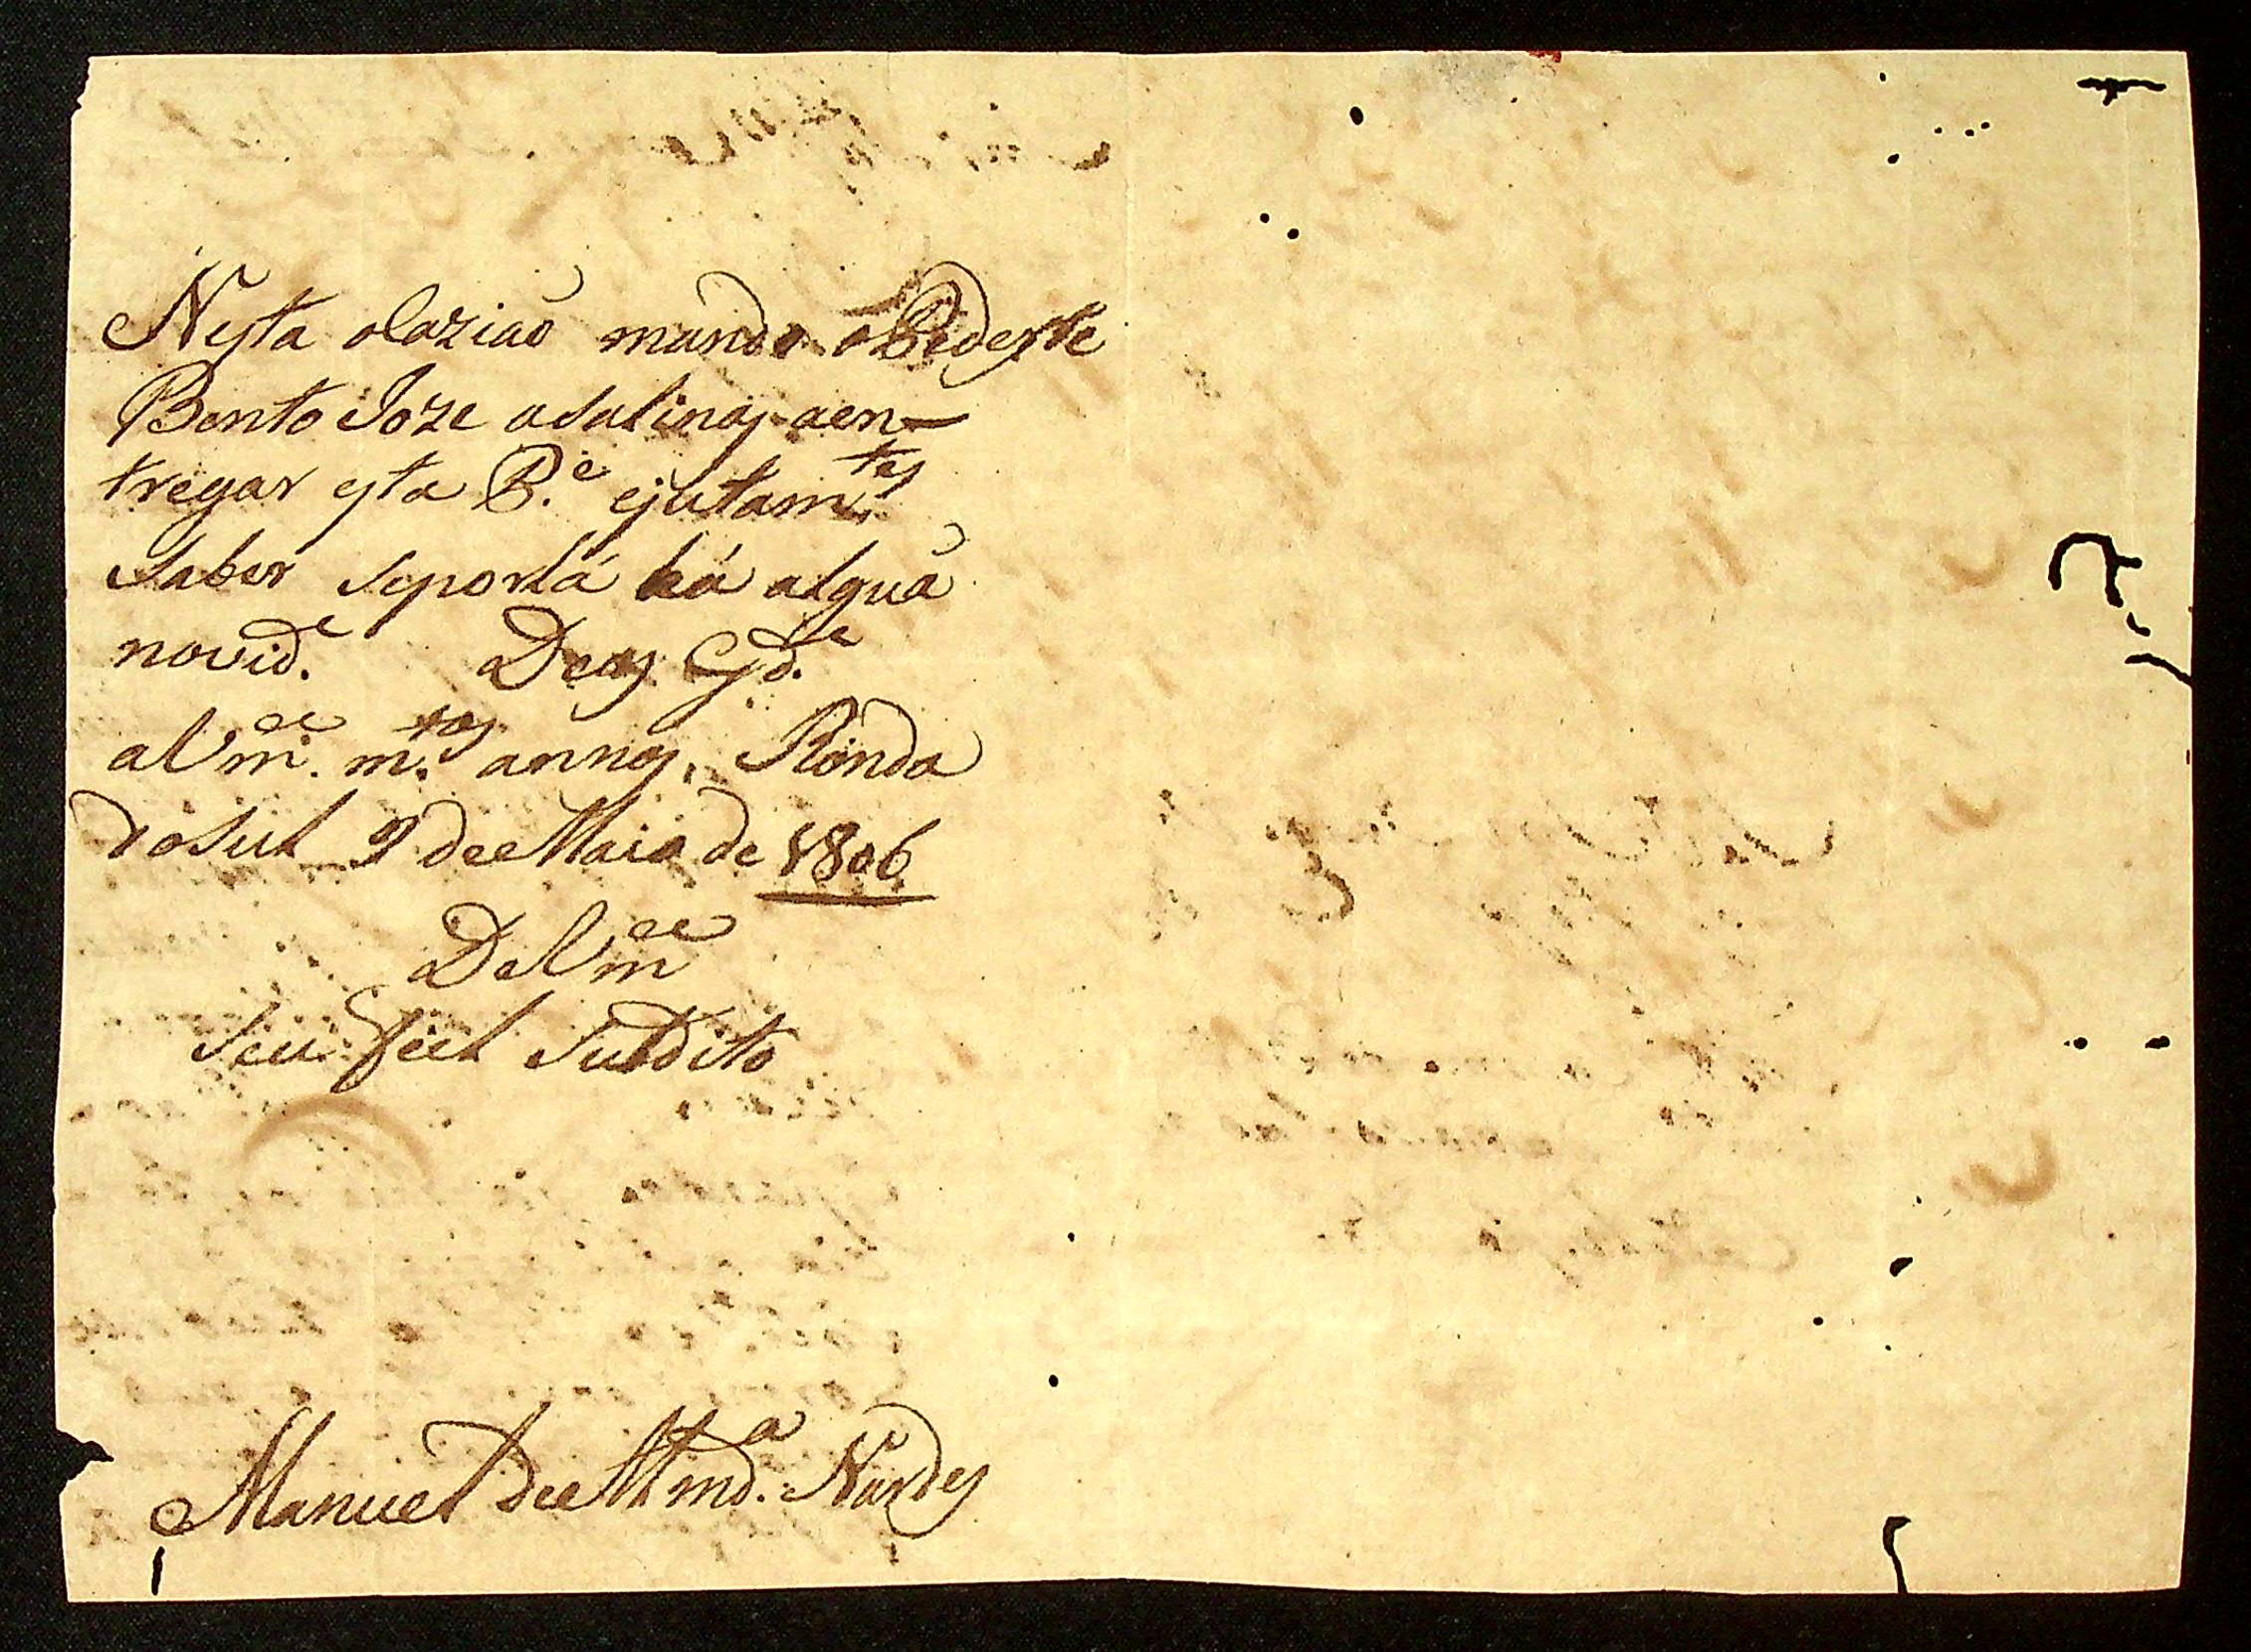 Nesta olaziaõ mando o Pedeste
Bento Joze asalinas aen-
tregar esta B.e ejutam.tes
saber seporlá há algũa
novid.e Deos Gd.e
aVm.ce m.tos annos, Ronda
dosul 9 deMaio de 1806
DeVm.ce
seu fiel sudito
Manuel deMmd.a Nardes